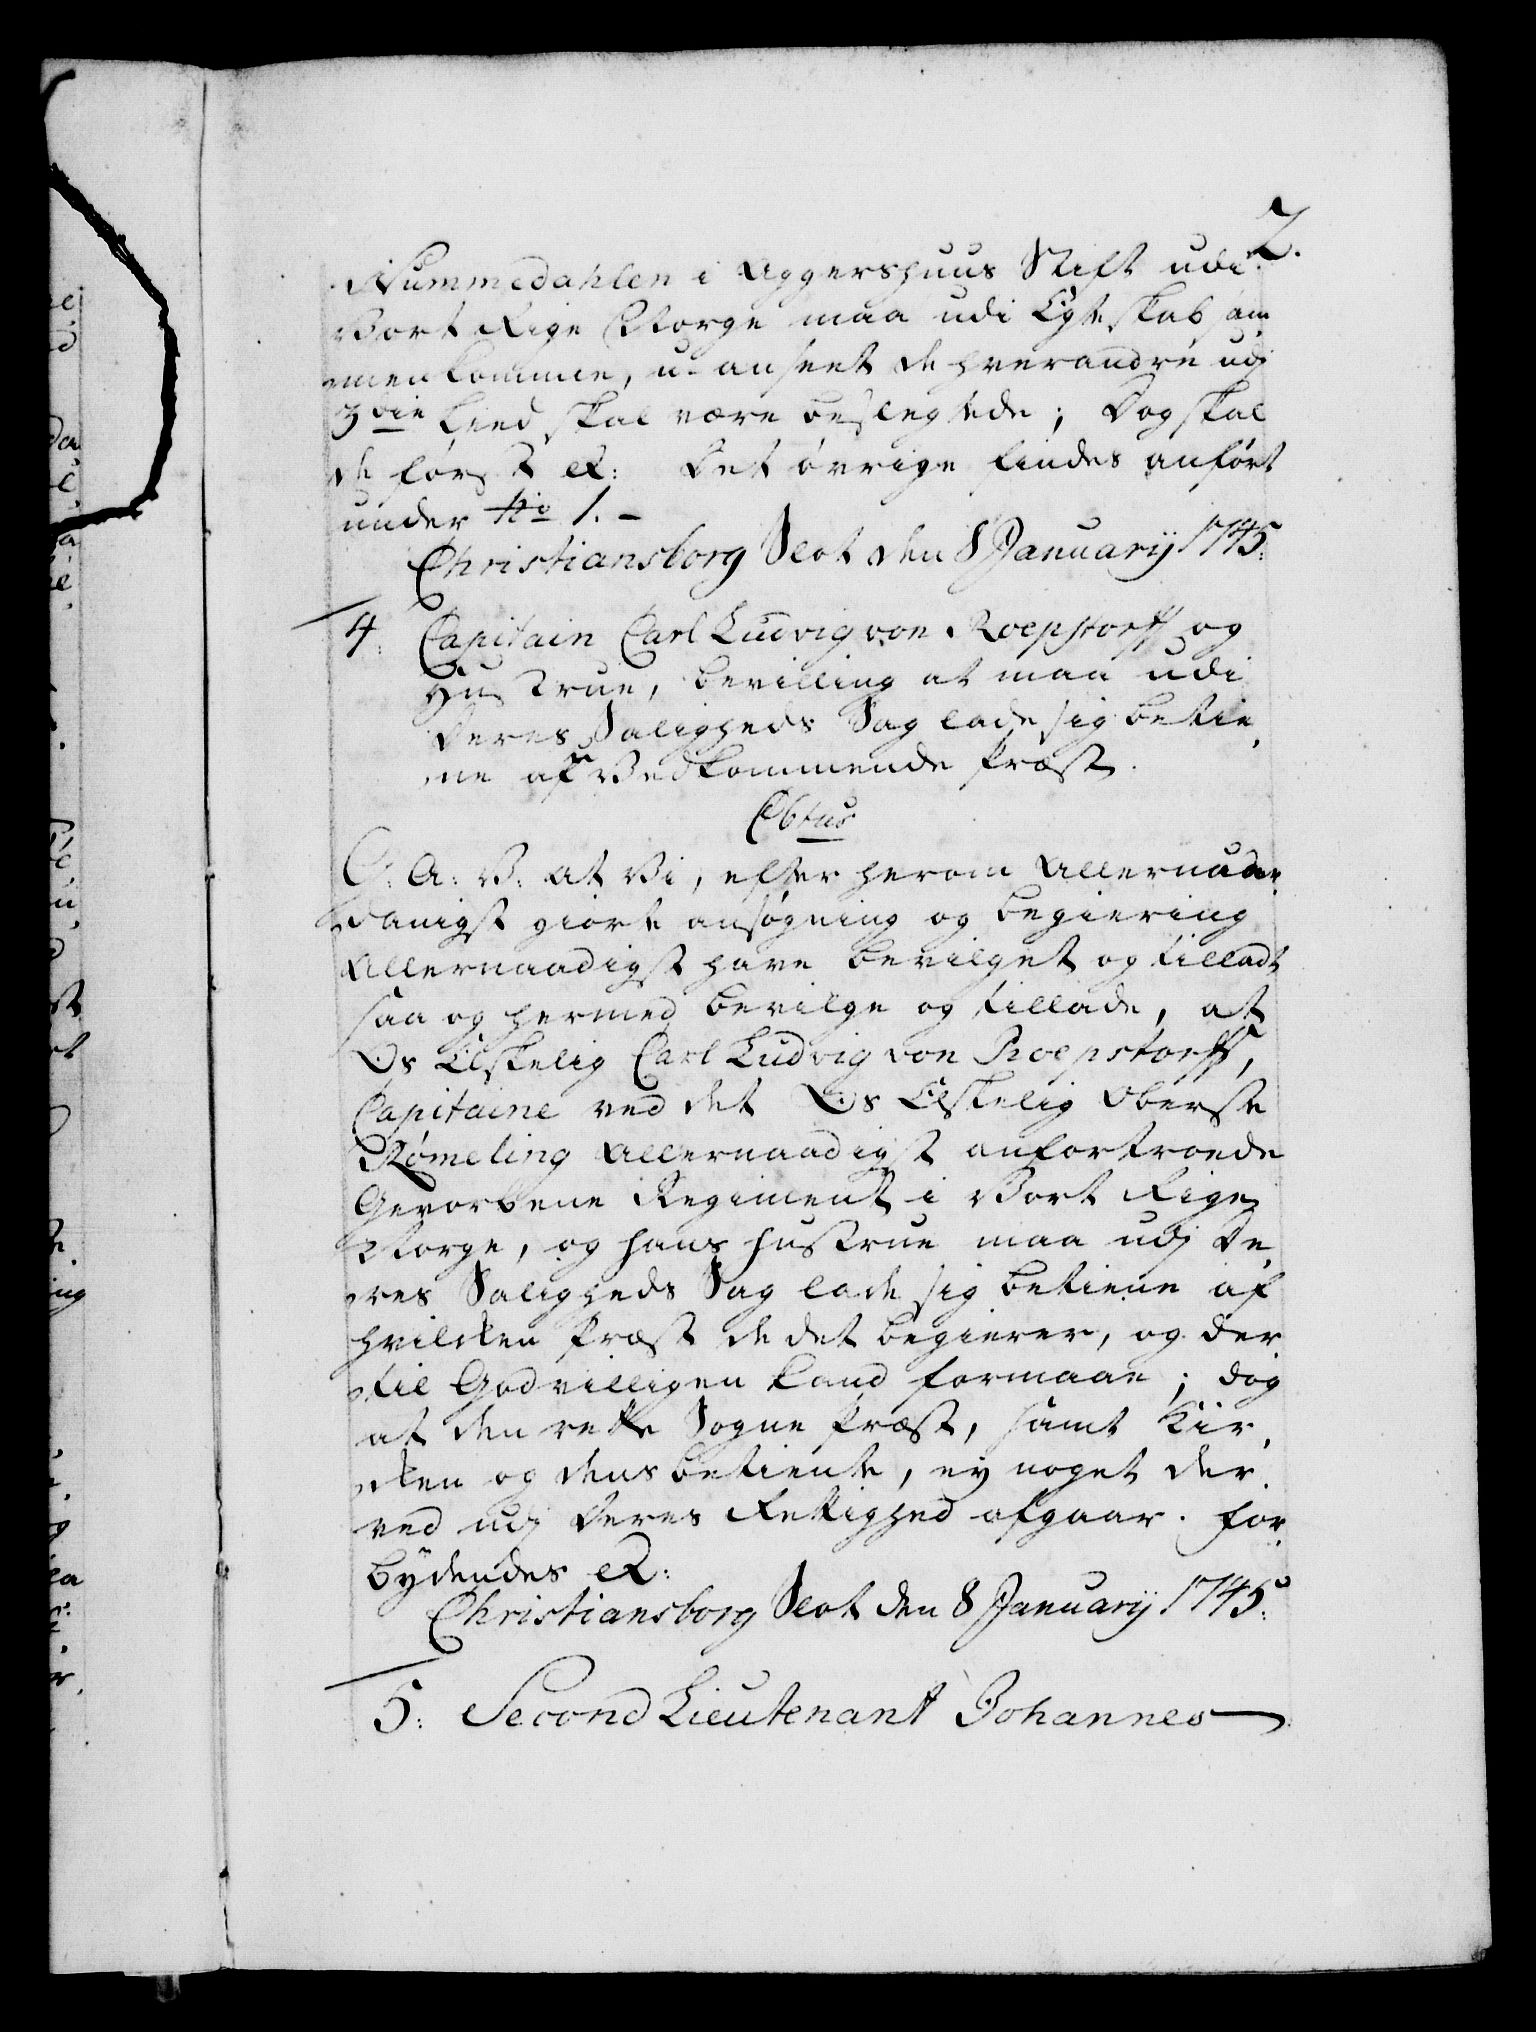 2.
Nummedahlen i Aggershuus Stift udi
Vort Rige Norge maa udi Egteskab sam
menkomme, u-anseet de hverandre udj
3die Leed skal være beslegtede; Dog skal
de først etc: Det øvrige findes anført
under No 1. -
Christiansborg Slot den 8 January 1745.
4. Capitain Carl Ludvig von Roepstorff og
Hustrue, bevilling at maa udi
Deres Saligheds Sag lade sig betie
ne af Vedkommende Præst.
C: A: V: At Vi, efter herom Allerunder
danigst giorte ansøgning og begiering
Allernaadigst have bevilget og tilladt
saa og hermed bevilge og tillade, at
Os Elskelig Carl Ludvig von Roepstorff,
Capitaine ved det Os Elskelig Oberste
Rømeling Allernaadigst anfortroede
Gevorbene Regiment i Vort Rige
Norge, og hans Hustrue maa udj De
res Saligheds Sag lade sig betiene af
hvilcken Præst de det begierer, og der
til Godvilligen kand formaae; dog
at den rette Sogne Præst, samt Kir
ken og dens betiente, ey noget der
ved udj Deres Rettighed afgaar. For
bydendes etc:
Christiansborg Slot den 8 January 1745:
5: Second Lieutenant Johannes